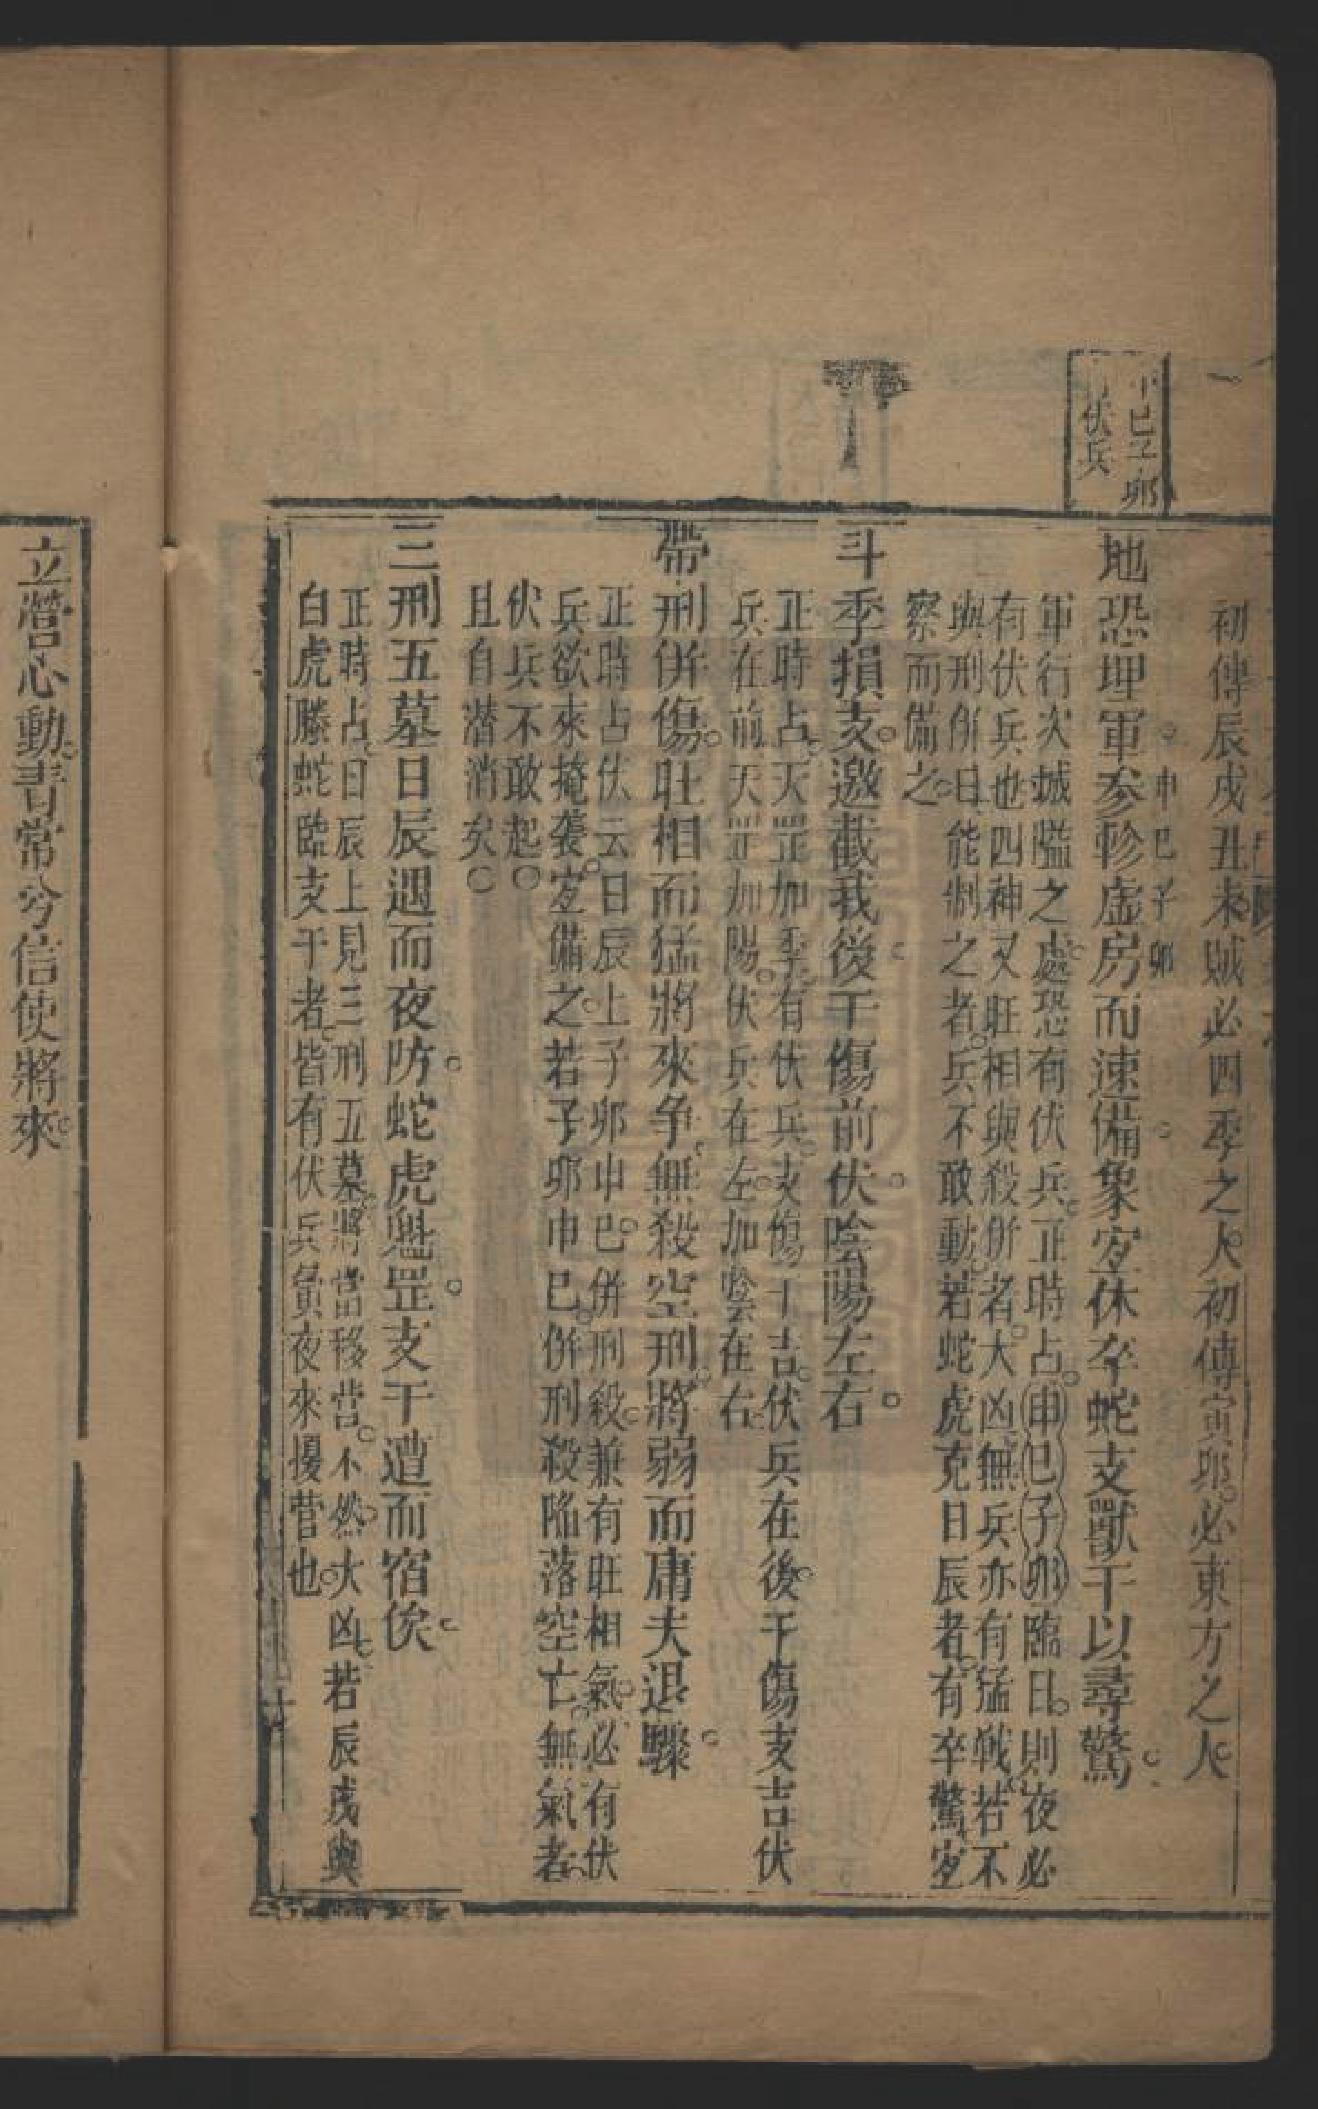 巳子卯
伏兵
初傳辰戌丑未賊必四季之人初傳寅卯必東方之人
地恐埋軍参軫虛房而速備象宐休卒蛇支獸干以尋驚
申巳子卯
軍行次城隘之處恐有伏兵正時占申巳子卯臨日則夜必
有伏兵也四神又旺相與殺併者大凶無兵亦有猛戰若不
與刑併日能制之者兵不敢動若蛇虎克日辰者有卒驚宐
察而備之
斗季損支邀截我後干傷前伏陰陽左右
正時占天罡加季有伏兵支傷干吉伏兵在後干傷支吉伏
兵在前天罡加陽伏兵在左加陰在右
帶刑併傷旺相而猛將來争無殺空刑將弱而庸夫退驟
正時占伏云日辰上子卯申巳併刑殺兼有旺相氣必有伏
兵欲來掩襲宐備之若子卯申巳併刑殺陷落空亡無氣者
伏兵不敢起
且自潜消矣
三刑五墓日辰遇而夜防蛇虎魁罡支干遭而宿俟
正時占日辰上見三刑五墓將當移营不然大凶若辰戌與
白虎螣蛇臨支干者皆有伏兵夤夜來擾营也
立營心動青常兮信使將來